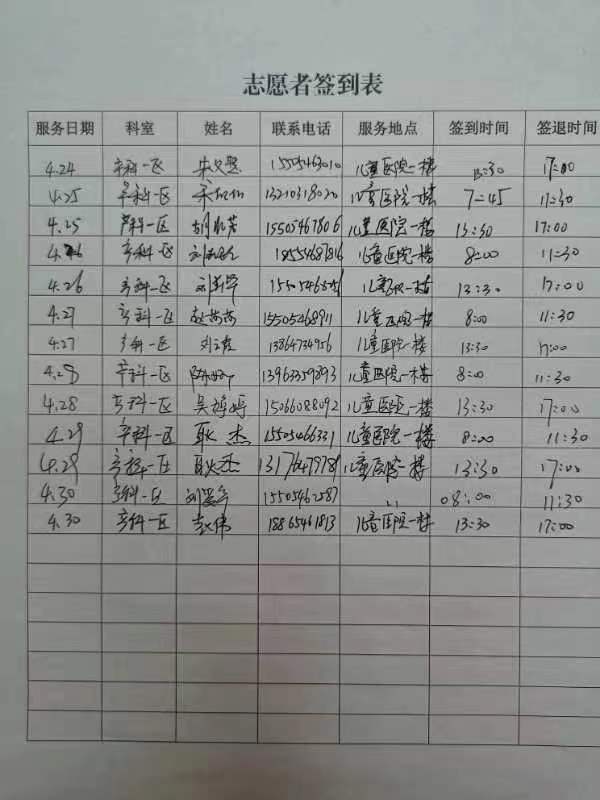 志愿者签到表
服务日期 科室 姓名 联系电话 服务地点 签到时间 签退时间
4.24 产科一区 15505463010 儿童医院一楼 13:30 17:00
4.25 产科一区 13210318020 儿童医院一楼 7:45 11:30
4.25 产科一区 15505467806 儿童医院一楼 13:30 17:00
4.26 产科一区 18554687816 儿童医院一楼 8:00 11:30
4.26 产科一区 13:30 17:00
4.27 产科一区 15505468911 儿童医院一楼 8:00 11:30
4.27 产科一区 13864734956 儿童医院一楼 13:30 17:00
4.28 产科一区 13963359893 儿童医院一楼 8:00 11:30
4.28 产科一区 吴婷婷 15066088092 儿童医院一楼 13:30 17:00
4.29 产科一区 耿杰 15505466331 儿童医院一楼 8:00 11:30
4.29 产科一区 耿杰 儿童医院一楼 13:30 17:00
4.30 产科一区 15505462587 〃 08:00 11:30
4.30 产科一区 赵伟 18865461813 儿童医院一楼 13:30 17:00